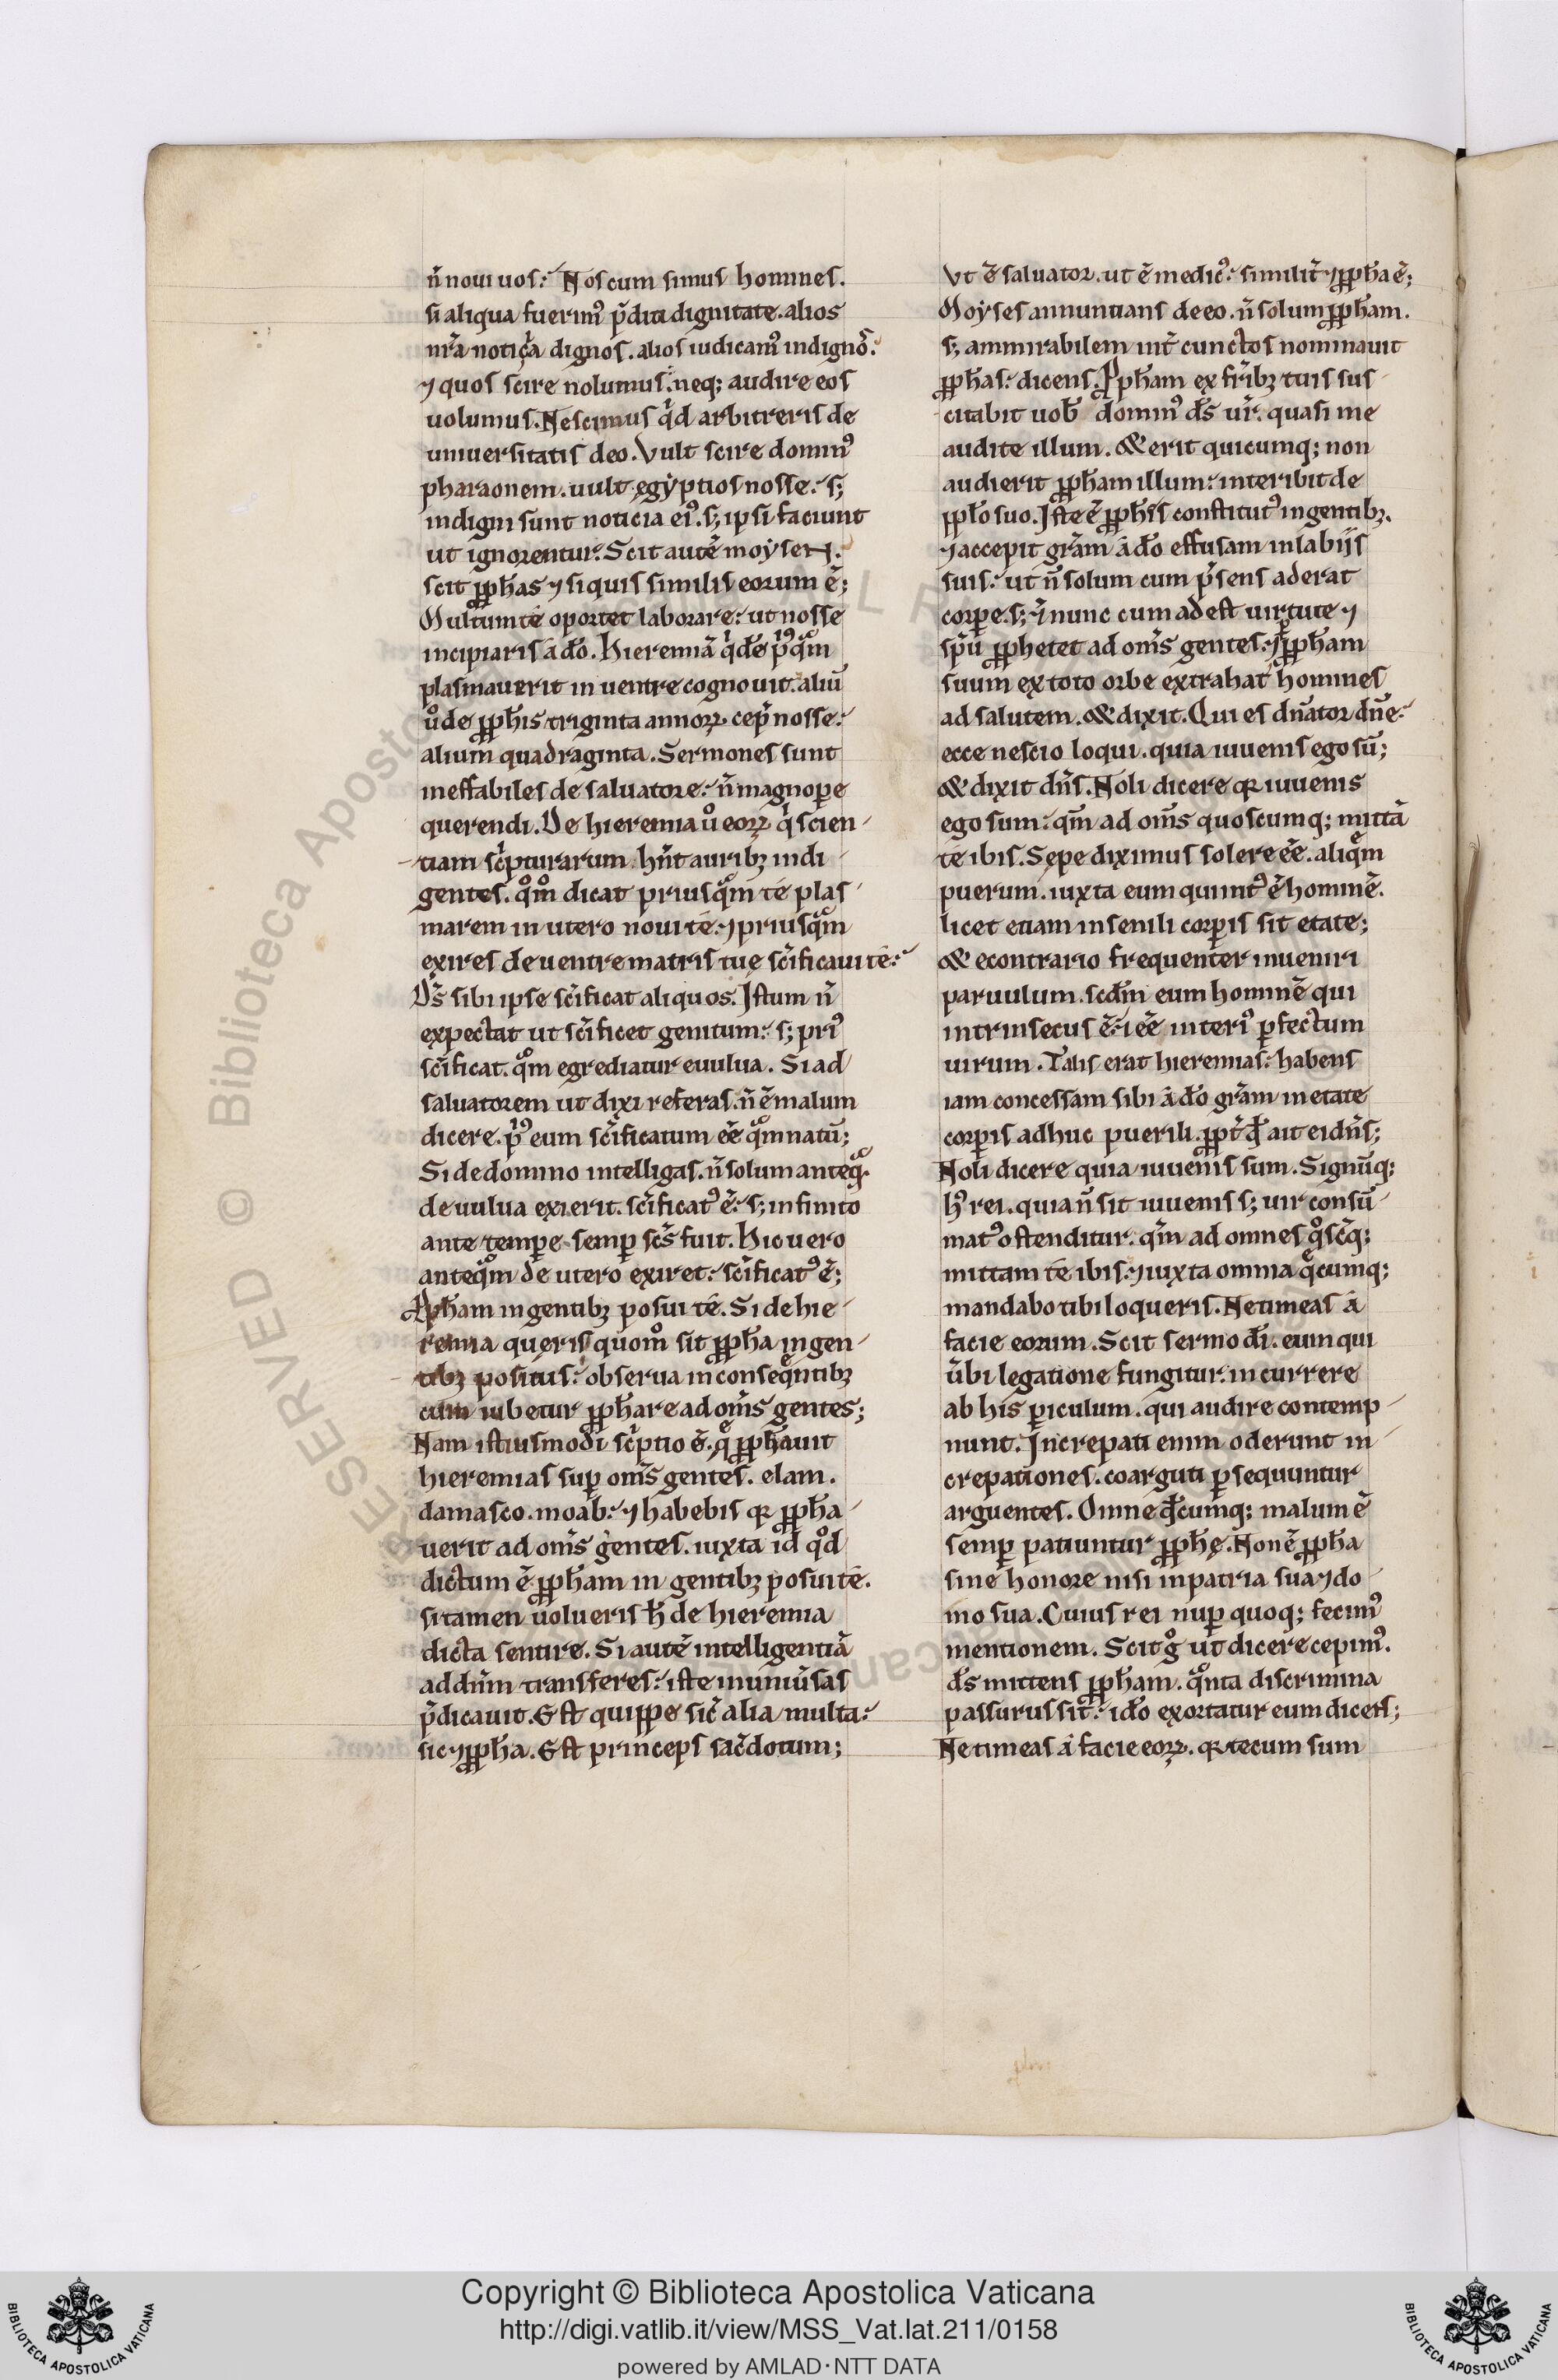 n̄ noui uos. Nos cum simus homines.
si aliqua fuerim᷒ p̄diti dignitate. alios
nr̄a noticia dignos. alios iudicam᷒ indignos.
⁊ quos scire nolumus. neq; audire eos
uolumus. Nescimus qͥd arbitreris de
uniuersitatis deo. Vult scire domin᷒
pharaonem. uult egẏptios nosse. s;
indigni sunt noticia ei᷒. s; ipsi faciunt
ut ignorentur. Scit autē moẏseN.
scit ꝓph̄as ⁊ siquis similis eorum ē;
Multum té oportet laborare. ut nosse
incipiaris ā dō. Hieremiā qͥdē pͥ᷒qͣm
plasmauerit in uentre cognouit. aliū
uͦ de ꝓph̄is triginta annoꝝ cep̄ nosse.
alium quadraginta. Sermones sunt
ineffabiles de saluatore. n̄ magnopere
querendi. De hieremia uͦ eoꝝ qͥ scien-
tiam scͥpturarum hn̄t auribꝫ indi-
gentes. qͦmͦ dicat priusqͣm té plas-
marem in utero noui té. ⁊ priusqͣm
exires de uentre matris tuę scīficaui té.
Ds̄ sibi ipse scīficat aliquos. Istum n̄
expectat ut scīficet genitum. s; pri᷒
scīficat. qͣm egrediatur euulua. Si ad
saluatorem ut dixi referas. n̄ ē malum
dicere. pͥ᷒ eum scīficatum eē qͣm natū;
Si de domino intelligas. n̄ solum anteqͣ.
de uulua exierit. scīficat᷒ ē. s; infinito
ante tempe semp̄ scs̄ fuit. Hic uero
anteqͣm de utero exiret. scīficat᷒ ē;
Pph̄am in gentibꝫ posui té. Si de hie-
remia queris quomͦ sit ꝓph̄a in gen-
tibꝫ positus. obserua in conseqͤntibꝫ
cum iubetur ꝓph̄are ad om̄s gentes;
Nam istiusmodi scͥptio ē. qͤ ꝓph̄auit
hieremias sup̄ om̄s gentes. elam.
damasco. moab. ⁊ habebis qꝛ ꝓph̄a-
uerit ad om̄s gentes. iuxta id qͦd
dictum ē ꝓph̄am in gentibꝫ posui té.
si tamen uolueris h̄ de hieremia
dicta sentire. Si autē intelligentiā
ad dn̄m transferes. iste in uniūsas
p̄dicauit. Est quippe sic̄ alia multa.
sic ⁊ ꝓph̄a. Est princeps sac̄dotum;
Vt ē saluator. ut ē medic᷒. similit̄ ⁊ ꝓph̄a ē;
Moẏses annuntians de eo. n̄ solum ꝓph̄am.
s; ammirabilem int̄ cunctos nominauit
ꝓph̄as. dicens. Pph̄am ex fr̄ibꝫ tuis sus-
citabit uob̄ domin᷒ ds̄ ur̄. quasi me
audite illum. & erit quicumq; non
audierit ꝓph̄am illum. interibit de
ppl̄o suo. Iste ē ꝓph̄is constitut᷒ in gentibꝫ.
⁊ accepit grām ā dō effusam in labijs
suis. ut n̄ solum cum p̄sens aderat
corpe. s; ⁊ nunc cum adest uirtute ⁊
spū ꝓphetet ad om̄s gentes. ⁊ ꝑ ꝓph̄am
suum ex toto orbe extrahat homines
ad salutem. & dixit. Qui es dn̄ator dn̄e.
ecce nescio loqui. quia iuuenis ego sū;
& dixit dn̄s. Noli dicere qꝛ iuuenis
ego sum. qm̄ ad om̄s quoscumq; mittā
té ibis. Sępe diximus solere eē. aliqͤm
puerum. iuxta eum qui int᷒ ē hominē.
licet etiam in senili corpis sit etate;
& econtrario frequenter inueniri
paruulum. scd̄m eum hominē qui
intrinsecus ē. ⁊ eē interi᷒ ꝑfectum
uirum. Talis erat hieremias. habens
iam concessam sibi ā dō grām in etate
corpis adhuc puerili. ꝓpt̄ qͩ ait ei dn̄s;
Noli dicere quia iuuenis sum. Signūq;
h᷒ rei. quia n̄ sit iuuenis s; uir consū-
mat᷒ ostenditur. qm̄ ad omnes qͦscūq;
mittam té ibis. ⁊ iuxta omnia qͤcumq;
mandabo tibi loqueris. Ne timeas ā
facie eorum. Scit sermo dī. eum qui
ūbi legatione fungitur. incurrere
ab his ꝑiculum. qui audire contemp-
nunt. Increpati enim oderunt in-
crepationes. coarguti ꝑsequuntur
arguentes. Omne qͩcumq; malum ē
semp̄ patiuntur ꝓph̄ę. Non ē ꝓph̄a
sine honore nisi in patria sua ⁊ do-
mo sua. Cuius rei nup̄ quoq; fecim᷒
mentionem. Scit gͦ ut dicere cepim᷒.
ds̄ mittens ꝓph̄am. qͣnta discrimina
passurus sit. idō exortatur eum dicens;
Ne timeas á facie eoꝝ. qꝛ tecum sum
Copyright © Biblioteca Apostolica Vaticana
http://digi.vatlib.it/view/MSS_Vat.lat.211/0158
powered by AMLAD·NTT DATA
BIBLIOTECA APOSTOLICA VATICANA
BIBLIOTECA APOSTOLICA VATICANA